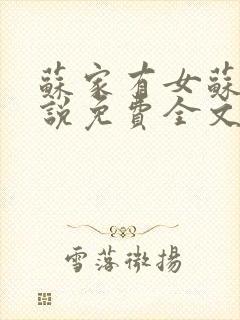 蘇家有女蘇
說免費全文
雪落微揚